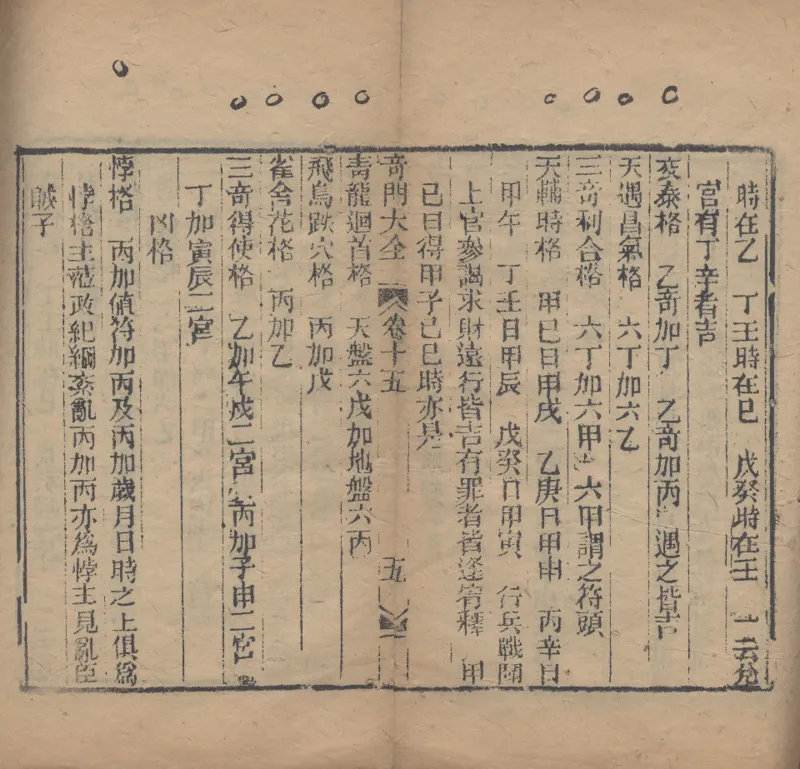 時在乙　丁壬時在巳　戊癸時在壬　一云兌
宮有丁辛者吉
交泰格　乙奇加丁　乙奇加丙　遇之皆吉
天遇昌氣格　六丁加六乙
三奇利合格　六丁加六甲　六甲謂之符頭
天輔時格　甲巳日甲戌　乙庚日甲申　丙辛日
甲午　丁壬日甲辰　戊癸日甲寅　行兵戰鬪
上官參謁求財遠行皆吉有罪者皆逢宥釋　甲
巳日得甲子己巳時亦是
奇門大全　卷十五　五
青龍迴首格　天盤六戊加地盤六丙
飛鳥跌穴格　丙加戊
雀含花格　丙加乙
三奇得使格　乙加午戌二宮　丙加子申二宮
丁加寅辰二宮
凶格
悖格　丙加値符加丙及丙加歲月日時之上俱爲
悖格主荒政紀綱紊亂丙加丙亦爲悖主見亂臣
賊子